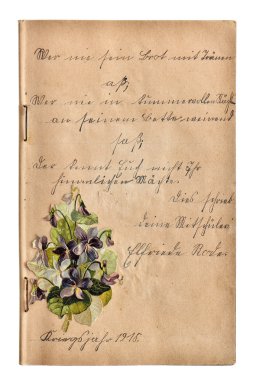 Wer nie sein Brot mit Tränen
aß,
Wer nie in kummervollen Nächt
an seinem Bette weinend
saß,
Der kennt Euch nicht Ihr
himmlischen Mächte.
Dies schrieb
deine Mitschüleri
Elfriede Rode.
Kriegsjahr 1918.